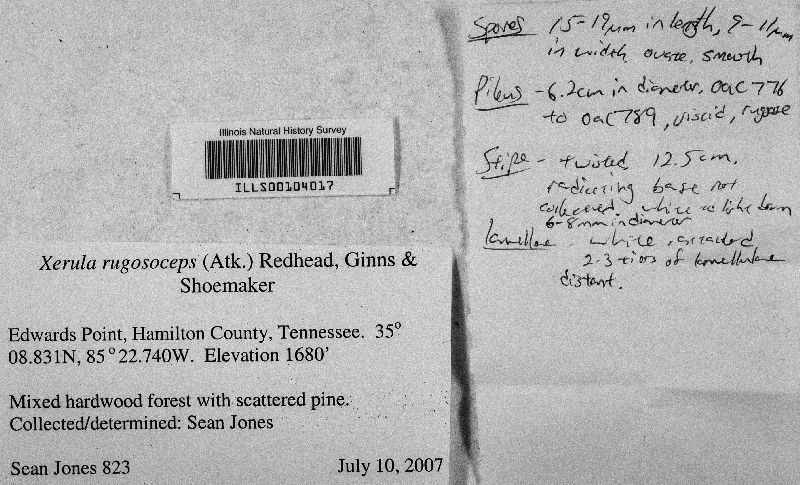 Illinois Natural History Survey
ILLS00104017
Xerula rugosoceps (Atk.) Redhead, Ginns &
Shoemaker
Edwards Point, Hamilton County, Tennessee. 35°
08.831N, 85°22.740W. Elevation 1680'
Mixed hardwood forest with scattered pine.
Collected/determined: Sean Jones
Sean Jones 823
July 10, 2007
Spores 15-19µm in length, 9-11µm
in width, ovate, smooth
Pileus - 6.2cm in diameter, oac 776
to oac 789, viscid, rugose
Stipe - twisted 12.5cm,
radicating base not
collected. white to light brown
6-8mm in diameter
lamellae - white,
2-3 tiers of lamellulae
distant.